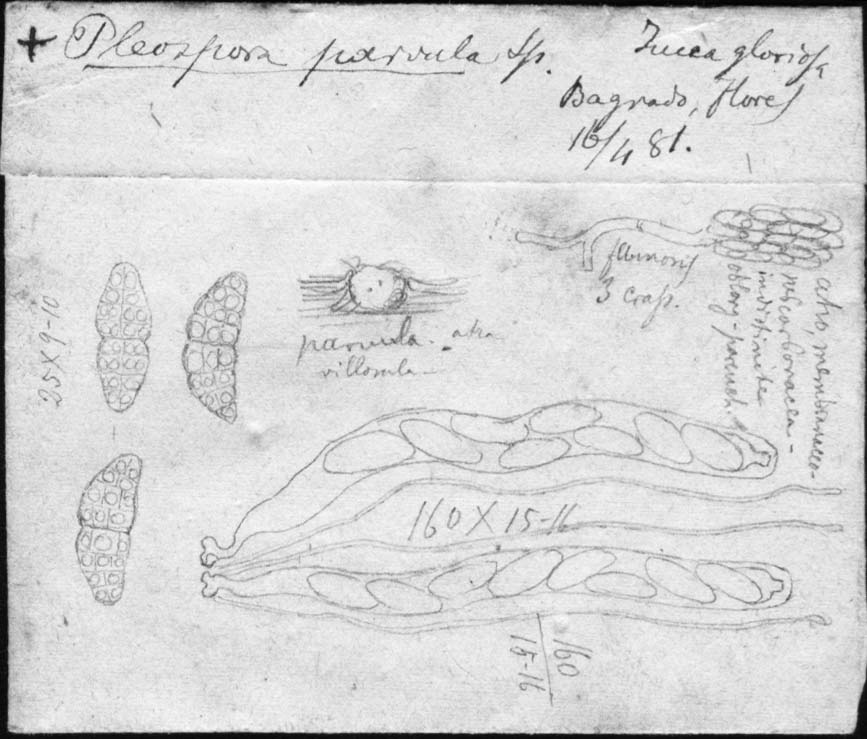 + Pleospora parvula Sp.
Yucca gloriosa
Bagnado, Flores
16/4 81.
25X9-10
parvula. atra
villosula
3 crass.
atro, membranaceo-
subcarbonacea-
indistincte
oblong-parench.
160X15-16
160
15-16